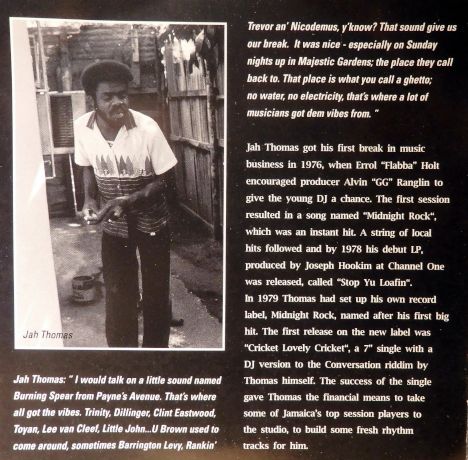 Jah Thomas
Jah Thomas: " I would talk on a little sound named
Burning Spear from Payne's Avenue. That's where
all got the vibes. Trinity, Dillinger, Clint Eastwood,
Toyan, Lee van Cleef, Little John...U Brown used to
come around, sometimes Barrington Levy, Rankin'
Trevor an' Nicodemus, y'know? That sound give us
our break. It was nice - especially on Sunday
nights up in Majestic Gardens; the place they call
back to. That place is what you call a ghetto;
no water, no electricity, that's where a lot of
musicians got dem vibes from. "
Jah Thomas got his first break in music
business in 1976, when Errol "Flabba" Holt
encouraged producer Alvin "GG" Ranglin to
give the young DJ a chance. The first session
resulted in a song named "Midnight Rock",
which was an instant hit. A string of local
hits followed and by 1978 his debut LP,
produced by Joseph Hookim at Channel One
was released, called "Stop Yu Loafin".
In 1979 Thomas had set up his own record
label, Midnight Rock, named after his first big
hit. The first release on the new label was
"Cricket Lovely Cricket", a 7" single with a
DJ version to the Conversation riddim by
Thomas himself. The success of the single
gave Thomas the financial means to take
some of Jamaica's top session players to
the studio, to build some fresh rhythm
tracks for him.